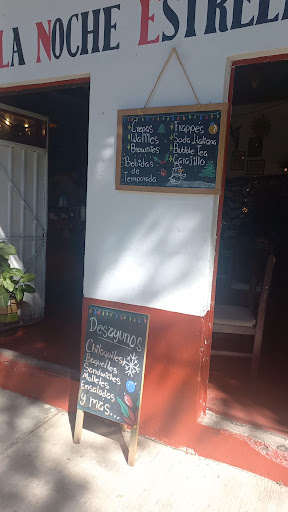 LA NOCHE ESTREL
+Crepas
+Waffles
+Brownies
Bebidas
de
Temporada
+Frappes
+Soda Italiana
+Bubble Tea
+Carajillo
Desayunos
Chilaquiles
Baguettes
Sandwiches
Molletes
Ensaladas
y más...